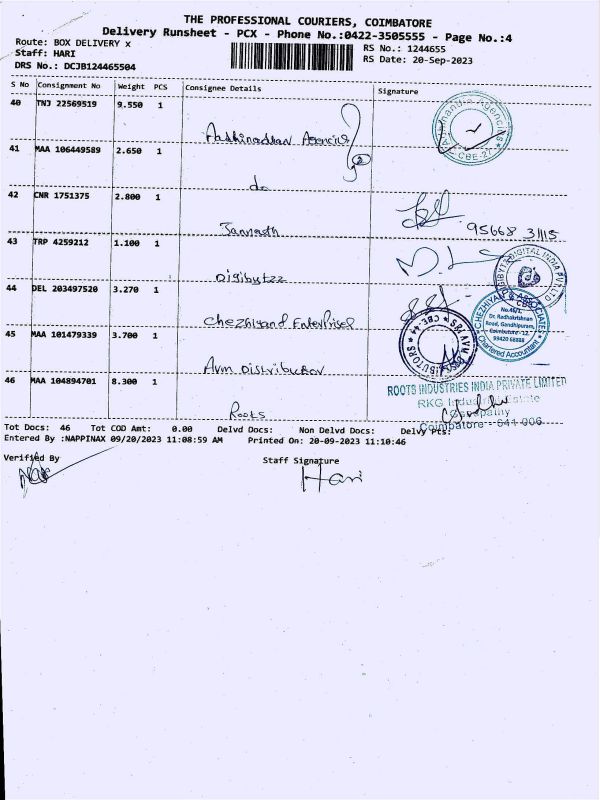 THE PROFESSIONAL COURIERS, COIMBATORE
Delivery Runsheet - PCX - Phone No.:0422-3505555 - Page No.:4
Route: BOX DELIVERY x
RS No.: 1244655
Staff: HARI
RS Date: 20-Sep-2023
DRS No.: DCJB124465504
S No Consignment No Weight PCS Consignee Details Signature
40 TNJ 22569519 9.550 1
Agencies
CBE-2
41 MAA 106449589 2.650 1
do
42 CNR 1751375 2.800 1
Jannath
95668 31115
43 TRP 4259212 1.100 1
Digibytzz
DIGITAL INDIA PVT LTD
44 DEL 203497520 3.270 1
Chezhiyand Enterprises
CHEZHIYAN & ASSOCIATE
No.46/1,
Dr. Radhakrishnan
Road, Gandhipuram,
Coimbatore - 12.
99420 68888
Chartered Accountant
45 MAA 101479339 3.700 1
Avm Distributor
46 MAA 104894701 8.300 1
Roots
ROOTS INDUSTRIES INDIA PRIVATE LIMITED
RKG Industrial Estate
Ganapathy
Coimbatore - 641 006
Tot Docs: 46 Tot COD Amt: 0.00 Delvd Docs: Non Delvd Docs: Delvy Pts:
Entered By :NAPPINAX 09/20/2023 11:08:59 AM Printed On: 20-09-2023 11:10:46
Verified By Staff Signature
Hari